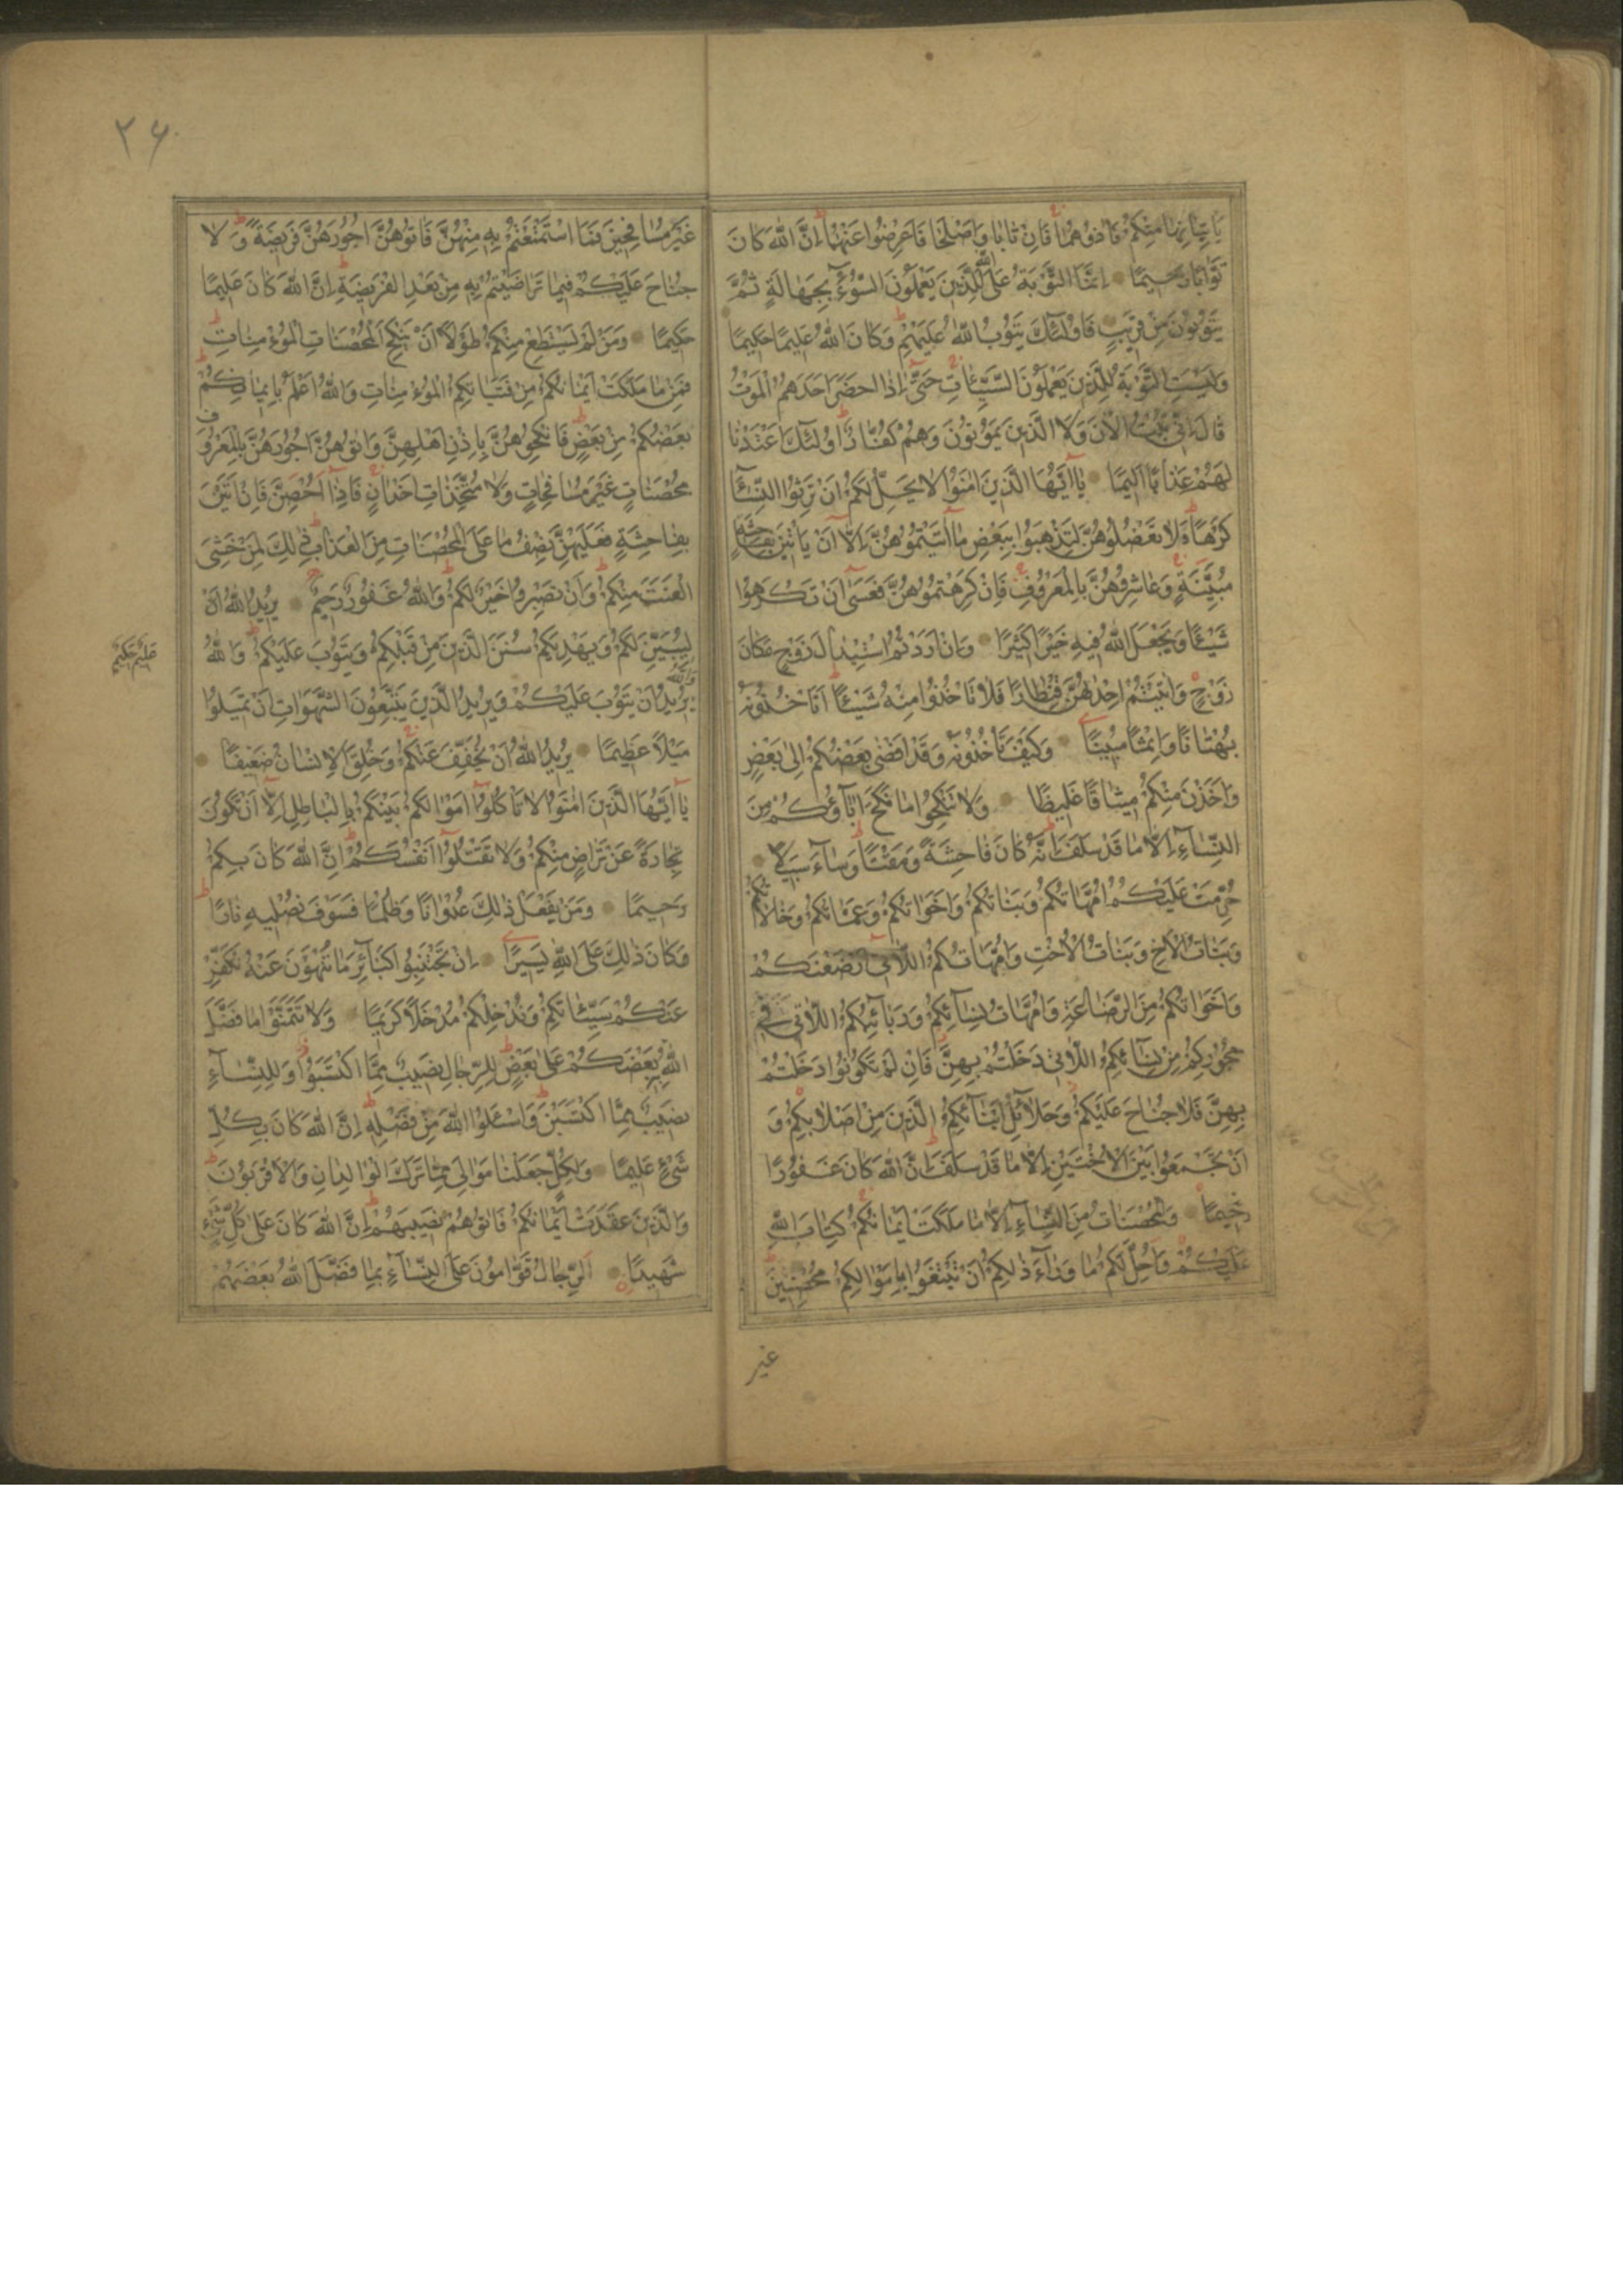 يَأْتِيَانِهَا مِنْكُمْ فَاٰذُوهُمَا فَاِنْ تَابَا وَاَصْلَحَا فَاَعْرِضُوا عَنْهُمَا اِنَّ اللّٰهَ كَانَ
تَوَّابًا رَحِيمًا اِنَّمَا التَّوْبَةُ عَلَى اللّٰهِ لِلَّذِينَ يَعْمَلُونَ السُّوءَ بِجَهَالَةٍ ثُمَّ
يَتُوبُونَ مِنْ قَرِيبٍ فَاُولٰئِكَ يَتُوبُ اللّٰهُ عَلَيْهِمْ وَكَانَ اللّٰهُ عَلِيمًا حَكِيمًا
وَلَيْسَتِ التَّوْبَةُ لِلَّذِينَ يَعْمَلُونَ السَّيِّئَاتِ حَتّٰى اِذَا حَضَرَ اَحَدَهُمُ الْمَوْتُ
قَالَ اِنِّي تُبْتُ الْاٰنَ وَلَا الَّذِينَ يَمُوتُونَ وَهُمْ كُفَّارٌ اُولٰئِكَ اَعْتَدْنَا
لَهُمْ عَذَابًا اَلِيمًا يَا اَيُّهَا الَّذِينَ اٰمَنُوا لَا يَحِلُّ لَكُمْ اَنْ تَرِثُوا النِّسَاءَ
كَرْهًا وَلَا تَعْضُلُوهُنَّ لِتَذْهَبُوا بِبَعْضِ مَا اٰتَيْتُمُوهُنَّ اِلَّا اَنْ يَأْتِينَ بِفَاحِشَةٍ
مُبَيِّنَةٍ وَعَاشِرُوهُنَّ بِالْمَعْرُوفِ فَاِنْ كَرِهْتُمُوهُنَّ فَعَسٰى اَنْ تَكْرَهُوا
شَيْئًا وَيَجْعَلَ اللّٰهُ فِيهِ خَيْرًا كَثِيرًا وَاِنْ اَرَدْتُمُ اسْتِبْدَالَ زَوْجٍ مَكَانَ
زَوْجٍ وَاٰتَيْتُمْ اِحْدٰهُنَّ قِنْطَارًا فَلَا تَأْخُذُوا مِنْهُ شَيْئًا اَتَأْخُذُونَهُ
بُهْتَانًا وَاِثْمًا مُبِينًا وَكَيْفَ تَأْخُذُونَهُ وَقَدْ اَفْضٰى بَعْضُكُمْ اِلٰى بَعْضٍ
وَاَخَذْنَ مِنْكُمْ مِيثَاقًا غَلِيظًا وَلَا تَنْكِحُوا مَا نَكَحَ اٰبَاؤُكُمْ مِنَ
النِّسَاءِ اِلَّا مَا قَدْ سَلَفَ اِنَّهُ كَانَ فَاحِشَةً وَمَقْتًا وَسَاءَ سَبِيلًا
حُرِّمَتْ عَلَيْكُمْ اُمَّهَاتُكُمْ وَبَنَاتُكُمْ وَاَخَوَاتُكُمْ وَعَمَّاتُكُمْ وَخَالَاتُكُمْ
وَبَنَاتُ الْاَخِ وَبَنَاتُ الْاُخْتِ وَاُمَّهَاتُكُمُ اللَّاتِي اَرْضَعْنَكُمْ
وَاَخَوَاتُكُمْ مِنَ الرَّضَاعَةِ وَاُمَّهَاتُ نِسَائِكُمْ وَرَبَائِبُكُمُ اللَّاتِي فِي
حُجُورِكُمْ مِنْ نِسَائِكُمُ اللَّاتِي دَخَلْتُمْ بِهِنَّ فَاِنْ لَمْ تَكُونُوا دَخَلْتُمْ
بِهِنَّ فَلَا جُنَاحَ عَلَيْكُمْ وَحَلَائِلُ اَبْنَائِكُمُ الَّذِينَ مِنْ اَصْلَابِكُمْ وَ
اَنْ تَجْمَعُوا بَيْنَ الْاُخْتَيْنِ اِلَّا مَا قَدْ سَلَفَ اِنَّ اللّٰهَ كَانَ غَفُورًا
رَحِيمًا وَالْمُحْصَنَاتُ مِنَ النِّسَاءِ اِلَّا مَا مَلَكَتْ اَيْمَانُكُمْ كِتَابَ اللّٰهِ
عَلَيْكُمْ وَاُحِلَّ لَكُمْ مَا وَرَاءَ ذٰلِكُمْ اَنْ تَبْتَغُوا بِاَمْوَالِكُمْ مُحْصِنِينَ
غير
٢٦
غَيْرَ مُسَافِحِينَ فَمَا اسْتَمْتَعْتُمْ بِهِ مِنْهُنَّ فَاٰتُوهُنَّ اُجُورَهُنَّ فَرِيضَةً وَلَا
جُنَاحَ عَلَيْكُمْ فِيمَا تَرَاضَيْتُمْ بِهِ مِنْ بَعْدِ الْفَرِيضَةِ اِنَّ اللّٰهَ كَانَ عَلِيمًا
حَكِيمًا وَمَنْ لَمْ يَسْتَطِعْ مِنْكُمْ طَوْلًا اَنْ يَنْكِحَ الْمُحْصَنَاتِ الْمُؤْمِنَاتِ
فَمِنْ مَا مَلَكَتْ اَيْمَانُكُمْ مِنْ فَتَيَاتِكُمُ الْمُؤْمِنَاتِ وَاللّٰهُ اَعْلَمُ بِاِيمَانِكُمْ
بَعْضُكُمْ مِنْ بَعْضٍ فَانْكِحُوهُنَّ بِاِذْنِ اَهْلِهِنَّ وَاٰتُوهُنَّ اُجُورَهُنَّ بِالْمَعْرُوفِ
مُحْصَنَاتٍ غَيْرَ مُسَافِحَاتٍ وَلَا مُتَّخِذَاتِ اَخْدَانٍ فَاِذَا اُحْصِنَّ فَاِنْ اَتَيْنَ
بِفَاحِشَةٍ فَعَلَيْهِنَّ نِصْفُ مَا عَلَى الْمُحْصَنَاتِ مِنَ الْعَذَابِ ذٰلِكَ لِمَنْ خَشِيَ
الْعَنَتَ مِنْكُمْ وَاَنْ تَصْبِرُوا خَيْرٌ لَكُمْ وَاللّٰهُ غَفُورٌ رَحِيمٌ يُرِيدُ اللّٰهُ اَنْ
لِيُبَيِّنَ لَكُمْ وَيَهْدِيَكُمْ سُنَنَ الَّذِينَ مِنْ قَبْلِكُمْ وَيَتُوبَ عَلَيْكُمْ وَاللّٰهُ
عَلِيمٌ حَكِيمٌ
وَاللّٰهُ
يُرِيدُ اَنْ يَتُوبَ عَلَيْكُمْ وَيُرِيدُ الَّذِينَ يَتَّبِعُونَ الشَّهَوَاتِ اَنْ تَمِيلُوا
مَيْلًا عَظِيمًا يُرِيدُ اللّٰهُ اَنْ يُخَفِّفَ عَنْكُمْ وَخُلِقَ الْاِنْسَانُ ضَعِيفًا
يَا اَيُّهَا الَّذِينَ اٰمَنُوا لَا تَأْكُلُوا اَمْوَالَكُمْ بَيْنَكُمْ بِالْبَاطِلِ اِلَّا اَنْ تَكُونَ
تِجَارَةً عَنْ تَرَاضٍ مِنْكُمْ وَلَا تَقْتُلُوا اَنْفُسَكُمْ اِنَّ اللّٰهَ كَانَ بِكُمْ
رَحِيمًا وَمَنْ يَفْعَلْ ذٰلِكَ عُدْوَانًا وَظُلْمًا فَسَوْفَ نُصْلِيهِ نَارًا
وَكَانَ ذٰلِكَ عَلَى اللّٰهِ يَسِيرًا اِنْ تَجْتَنِبُوا كَبَائِرَ مَا تُنْهَوْنَ عَنْهُ نُكَفِّرْ
عَنْكُمْ سَيِّئَاتِكُمْ وَنُدْخِلْكُمْ مُدْخَلًا كَرِيمًا وَلَا تَتَمَنَّوْا مَا فَضَّلَ
اللّٰهُ بِهِ بَعْضَكُمْ عَلٰى بَعْضٍ لِلرِّجَالِ نَصِيبٌ مِمَّا اكْتَسَبُوا وَلِلنِّسَاءِ
نَصِيبٌ مِمَّا اكْتَسَبْنَ وَاسْئَلُوا اللّٰهَ مِنْ فَضْلِهِ اِنَّ اللّٰهَ كَانَ بِكُلِّ
شَيْءٍ عَلِيمًا وَلِكُلٍّ جَعَلْنَا مَوَالِيَ مِمَّا تَرَكَ الْوَالِدَانِ وَالْاَقْرَبُونَ
وَالَّذِينَ عَقَدَتْ اَيْمَانُكُمْ فَاٰتُوهُمْ نَصِيبَهُمْ اِنَّ اللّٰهَ كَانَ عَلٰى كُلِّ شَيْءٍ
شَهِيدًا اَلرِّجَالُ قَوَّامُونَ عَلَى النِّسَاءِ بِمَا فَضَّلَ اللّٰهُ بَعْضَهُمْ